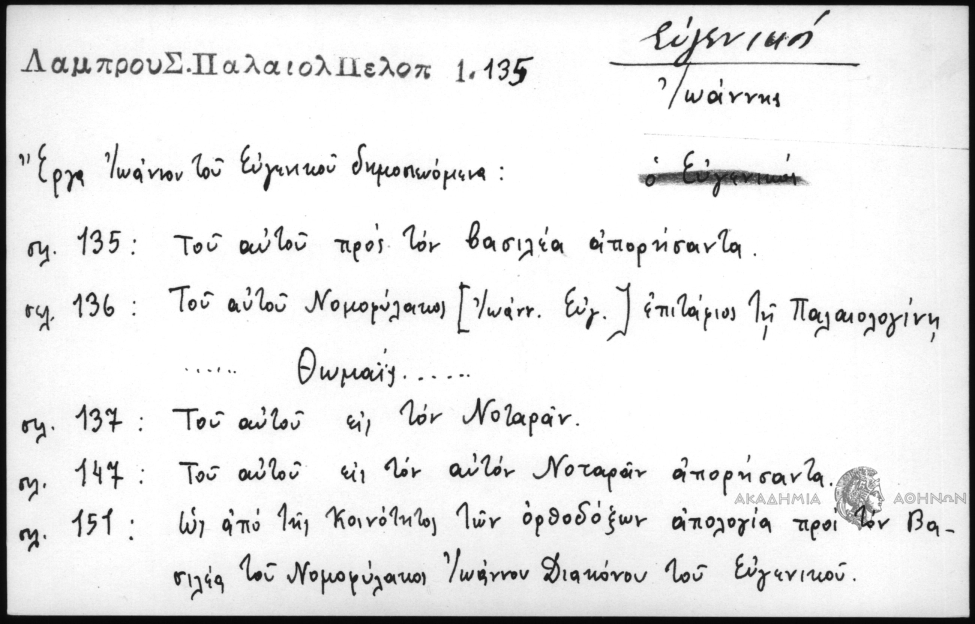 Εὐγενικός
ΛαμπρουΣ.ΠαλαιολΠελοπ 1.135
Ἰωάννης
Ἔργα Ἰωάννου τοῦ Εὐγενικοῦ δημοσιευόμενα :
ὁ Εὐγενικός
σελ. 135 : Τοῦ αὐτοῦ πρὸς τὸν βασιλέα ἀπορήσαντα.
σελ. 136 : Τοῦ αὐτοῦ Νομοφύλακος [Ἰωάνν. Εὐγ.] ἐπιτάφιος τῇ Παλαιολογίνῃ
...... Θωμαΐς......
σελ. 137 : Τοῦ αὐτοῦ εἰς τὸν Νοταρᾶν.
σελ. 147 : Τοῦ αὐτοῦ εἰς τὸν αὐτὸν Νοταρᾶν ἀπορήσαντα.
ΑΚΑΔΗΜΙΑ ΑΘΗΝΩΝ
σελ. 151 : Ὡς ἀπὸ τῆς Κοινότητος τῶν ὀρθοδόξων ἀπολογία πρὸς τὸν Βα-
σιλέα τοῦ Νομοφύλακος Ἰωάννου Διακόνου τοῦ Εὐγενικοῦ.